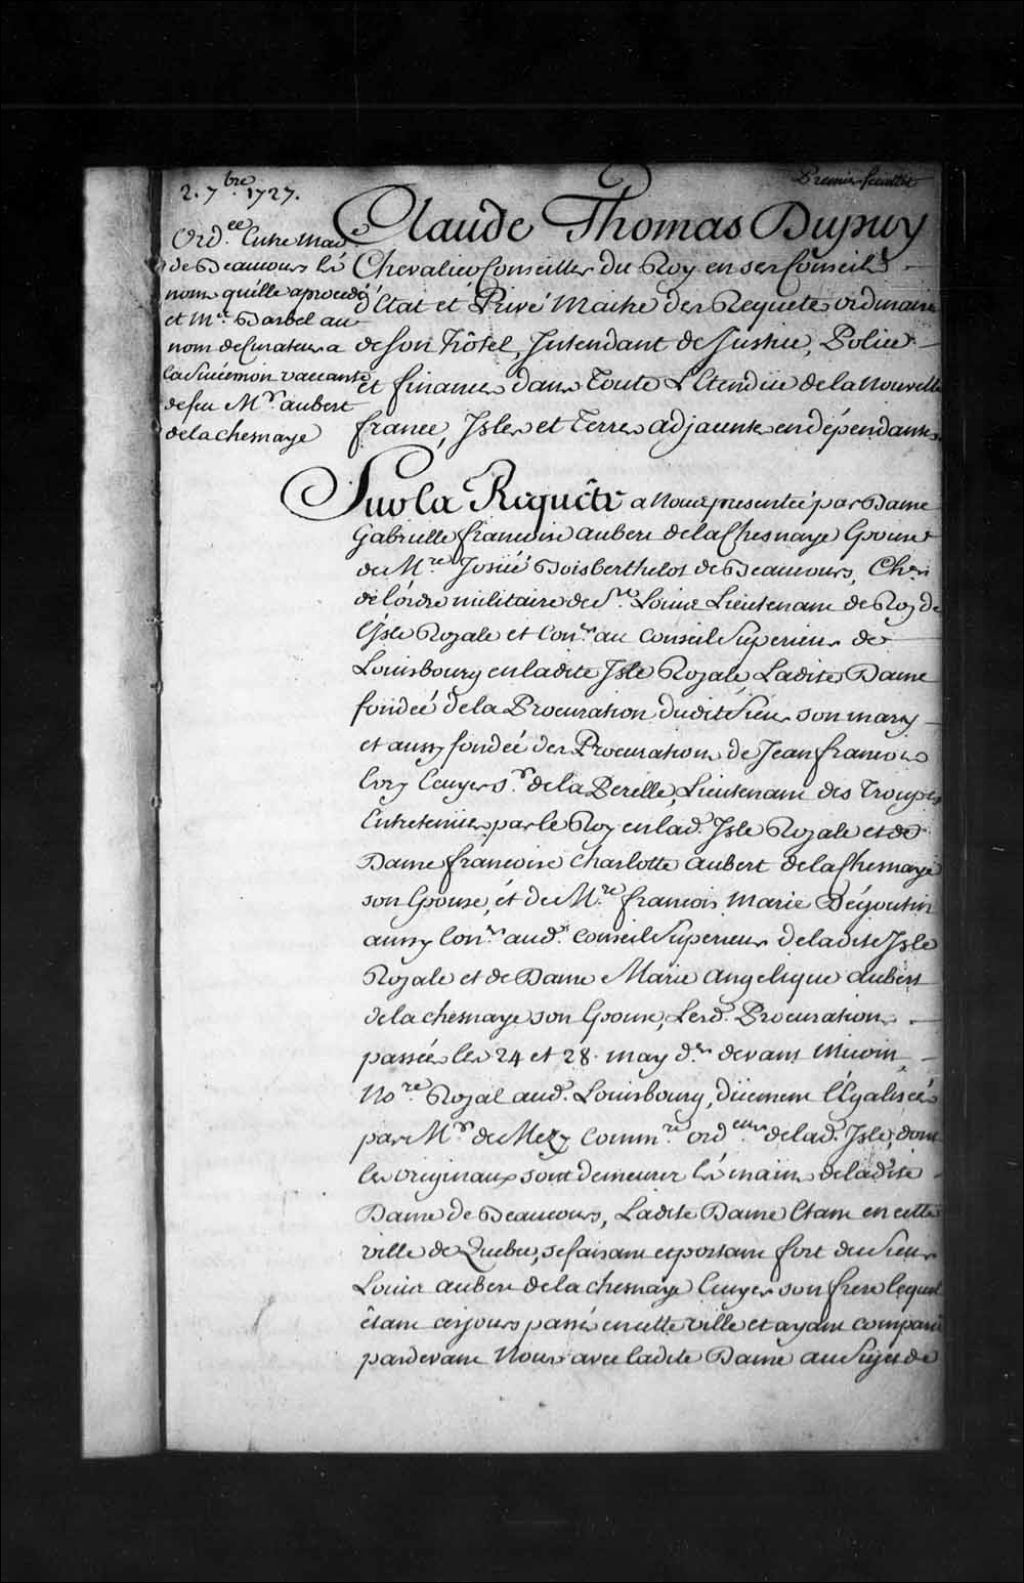 2. 7bre 1727.
Premier feuillet
Ordce Entre Made
de Beaucours és
noms qu'elle a procedé
et Mr. Barbel au
nom de Curateur a
la Succession vaccante
de feu Mr. aubert
de la chesnaye
Claude Thomas Dupuy
Chevalier Conseiller du Roy en ses Conseils
d'Etat et Privé Maitre des Requetes ordinaire
de son hôtel, Intendant de Justice, Police
et finances dans Toute L'Etendüe de la Nouvelle
france, Isles et Terres adjacentes en dépendantes.
Sur la Requête a Nous presentée par Dame
Gabrielle francoise aubert de la Chesnaye Epouse
de Mre Josüé Boisberthelot de Beaucours, Cher
de l'ordre militaire de St. Louis Lieutenant de Roy de
l'Isle Royale et Conr. au Conseil Superieur de
Louisbourg en ladite Isle Royale, Ladite Dame
fondée de la Procuration dudit Sieur son mary
et aussy fondée des Procurations de Jean francois
Ecuyer Sr. de la Perelle, Lieutenant des Troupes
Entretenües par le Roy en lad. Isle Royale et de
Dame francoise Charlotte aubert de la Chesnaye
son Epouse, et de Mre francois Marie Dégoutin
aussy Conr. aud. Conseil Superieur de ladite Isle
Royale et de Dame Marie angelique aubert
de la chesnaye son Epouse, Lesd. Procurations
passées les 24 et 28. may der devant
Nore Royal aud. Louisbourg, düement légalisées
par Mr. de Mezy Commre ordeur de lad. Isle, dont
les originaux sont demeurez és mains de ladite
Dame de Beaucours, Ladite Dame Etant en cette
ville de Quebec, se faisant et portant fort du Sieur
Louis aubert de la chesnaye Ecuyer son frere lequel
étant ces jours passés en cette ville et ayant comparu
pardevant Nous avec ladite Dame au Sujet de